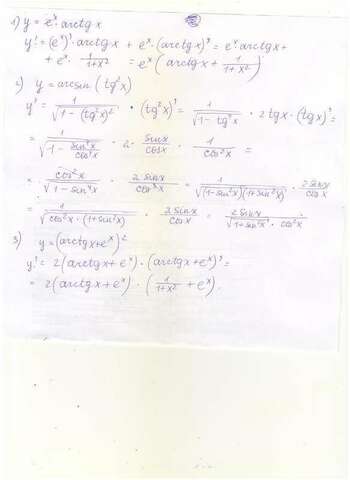 1) y = eˣ · arctg x
y' = (eˣ)' · arctg x + eˣ · (arctg x)' = eˣ · arctg x +
+ eˣ · 1/(1+x²) = eˣ (arctg x + 1/(1+x²))
2) y = arcsin (tg²x)
y' = 1/√(1 - (tg²x)²) · (tg²x)' = 1/√(1 - tg⁴x) · 2 tg x · (tg x)' =
= 1/√(1 - sin⁴x/cos⁴x) · 2 · sin x/cos x · 1/cos²x =
= cos²x/√(1 - sin⁴x) · 2 sin x/cos³x = 1/√((1-sin²x)(1+sin²x)) · 2 sin x/cos x
= 1/√(cos²x · (1+sin²x)) · 2 sin x/cos x = 2 sin x/(√(1+sin²x) · cos²x)
3) y = (arctg x + eˣ)²
y' = 2(arctg x + eˣ) · (arctg x + eˣ)' =
= 2(arctg x + eˣ) · (1/(1+x²) + eˣ)